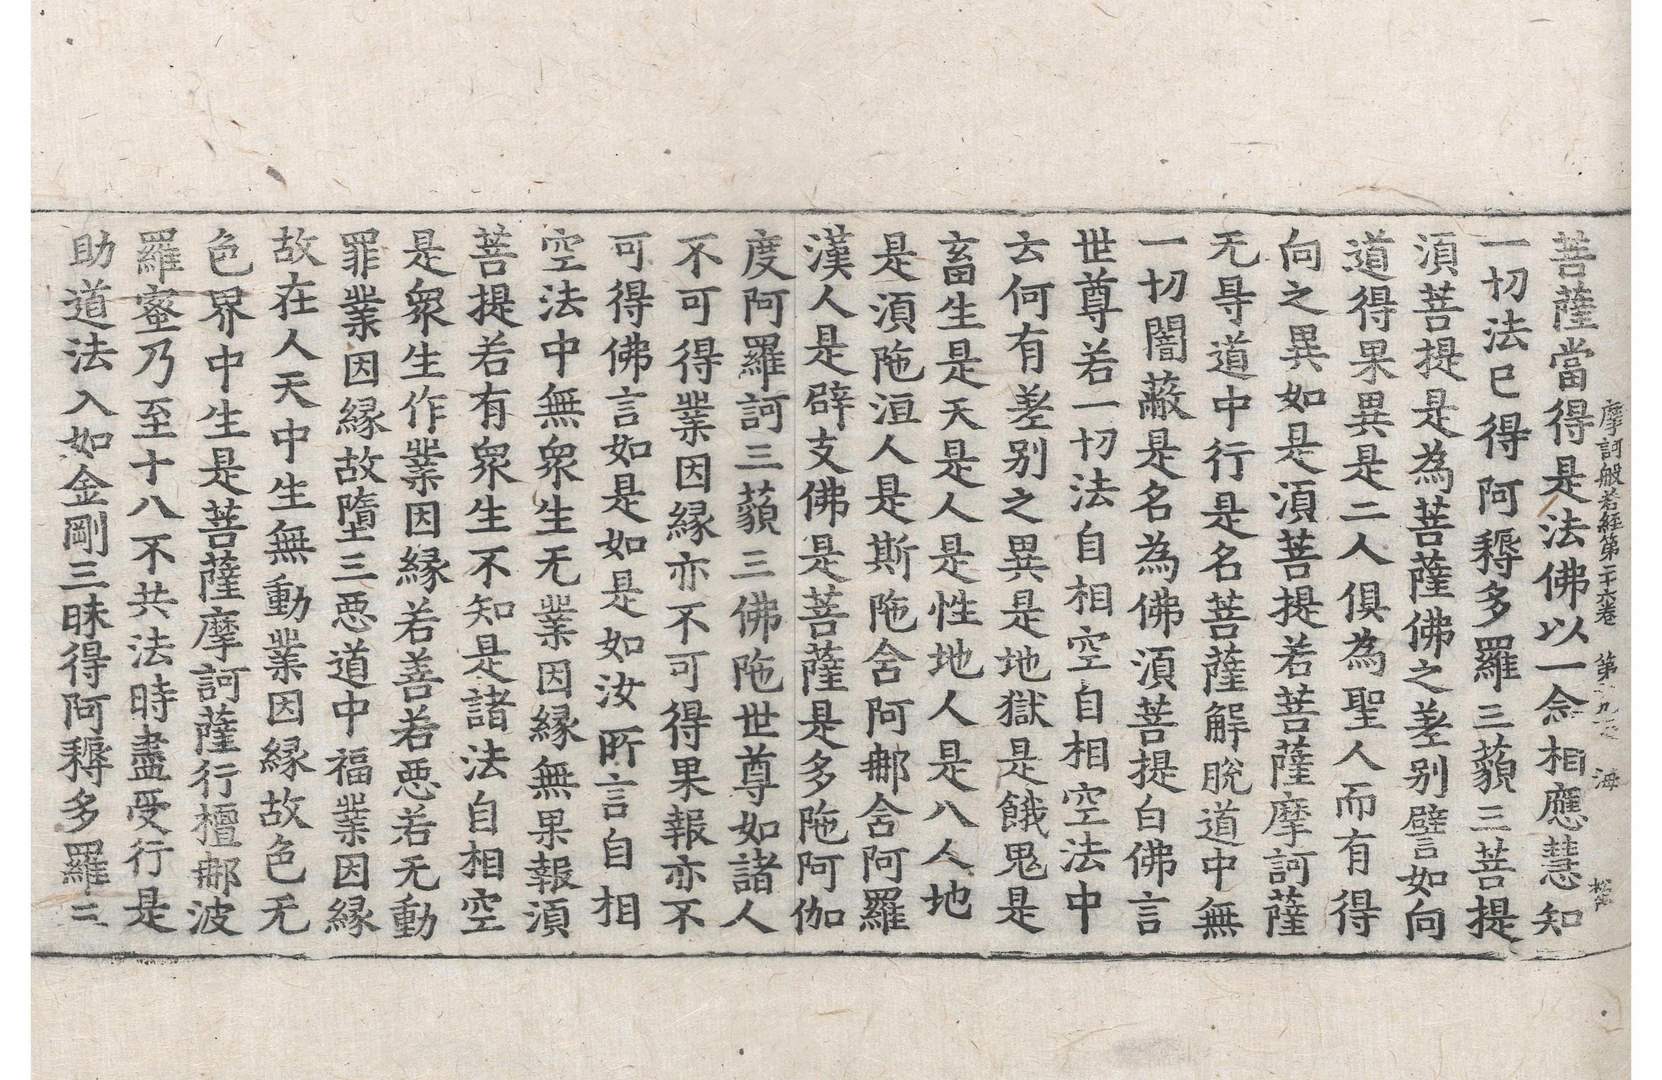 摩訶般若經第二十六卷 第十九丈 海
菩薩當得是法佛以一念相應慧知
一切法已得阿耨多羅三藐三菩提
湏菩提是為菩薩佛之差别譬如向
道得果異是二人俱為聖人而有得
向之異如是湏菩提若菩薩摩訶薩
无㝵道中行是名菩薩解脫道中無
一切闇蔽是名為佛湏菩提白佛言
世尊若一切法自相空自相空法中
云何有差别之異是地獄是餓鬼是
畜生是天是人是性地人是八人地
是湏陁洹人是斯陁含阿那含阿羅
漢人是辟支佛是菩薩是多陁阿伽
度阿羅訶三藐三佛陁世尊如諸人
不可得業因緣亦不可得果報亦不
可得佛言如是如是如汝所言自相
空法中無衆生无業因緣無果報湏
菩提若有衆生不知是諸法自相空
是衆生作業因緣若善若惡若无動
罪業因緣故墮三惡道中福業因緣
故在人天中生無動業因緣故色无
色界中生是菩薩摩訶薩行檀那波
羅蜜乃至十八不共法時盡受行是
助道法入如金剛三昧得阿耨多羅三